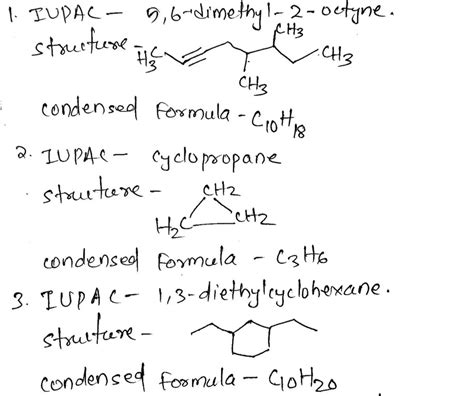 1. IUPAC – 5,6-dimethyl-2-octyne.
structure –
CH3
H3C
CH3
CH3
condensed formula – C10H18
2. IUPAC – cyclopropane
structure –
CH2
H2C
CH2
condensed formula – C3H6
3. IUPAC – 1,3-diethylcyclohexane.
structure –
condensed formula – C10H20